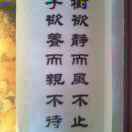 樹欲静而風不止
子欲養而親不待